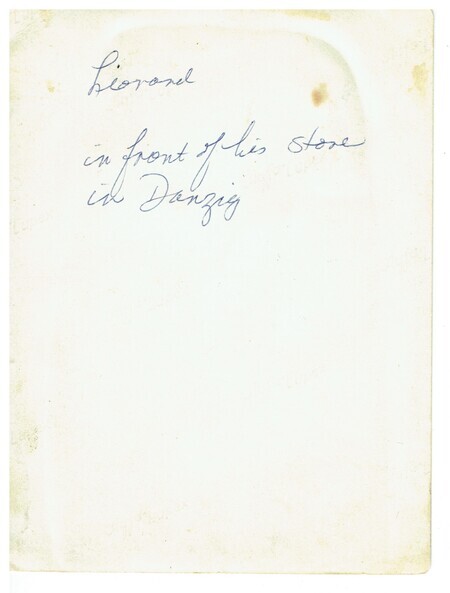 Leonard
in front of his store
in Danzig